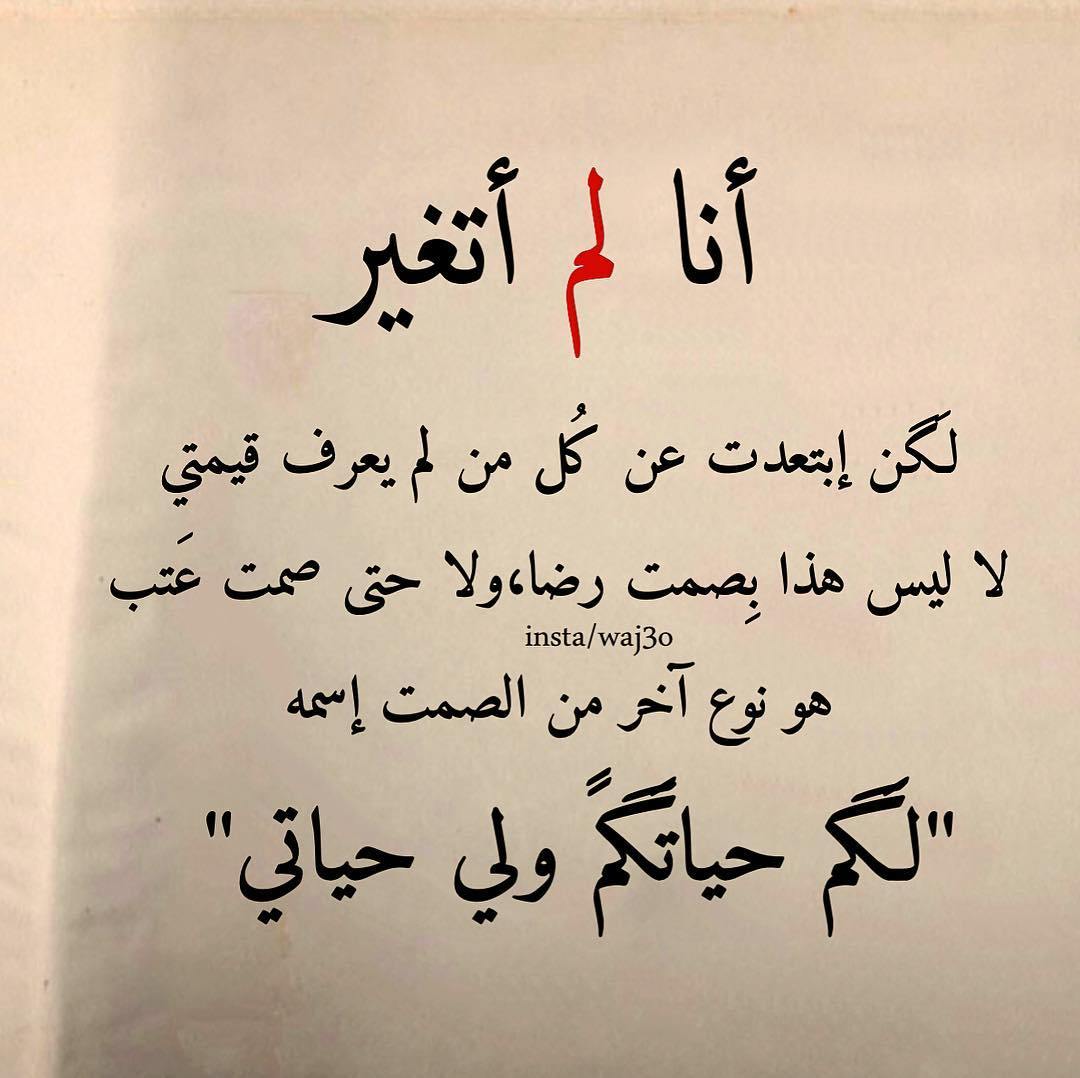 أنا لم أتغير
لَگن إبتعدت عن كُل من لم يعرف قيمتي
لا ليس هذا بِصمت رضا،ولا حتى صمت عَتب
insta/waj3o
هو نوع آخر من الصمت إسمه
"لَگم حياتَگمً ولي حياتي"